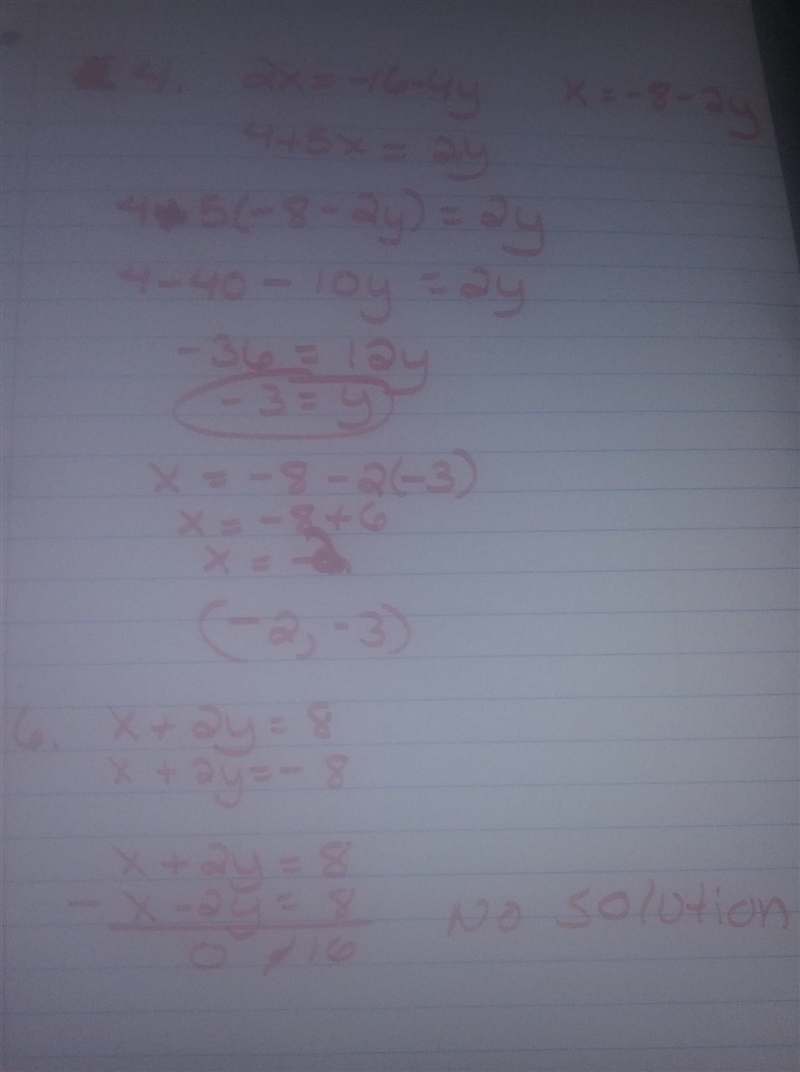 4. 2x = -16-4y x = -8-2y
4+5x = 2y
4+5(-8-2y) = 2y
4-40-10y = 2y
-36 = 12y
-3 = y
x = -8-2(-3)
x = -8+6
x = -2
(-2, -3)
6. x + 2y = 8
x + 2y = -8
x + 2y = 8
- x - 2y = 8
0 ≠ 16 No Solution